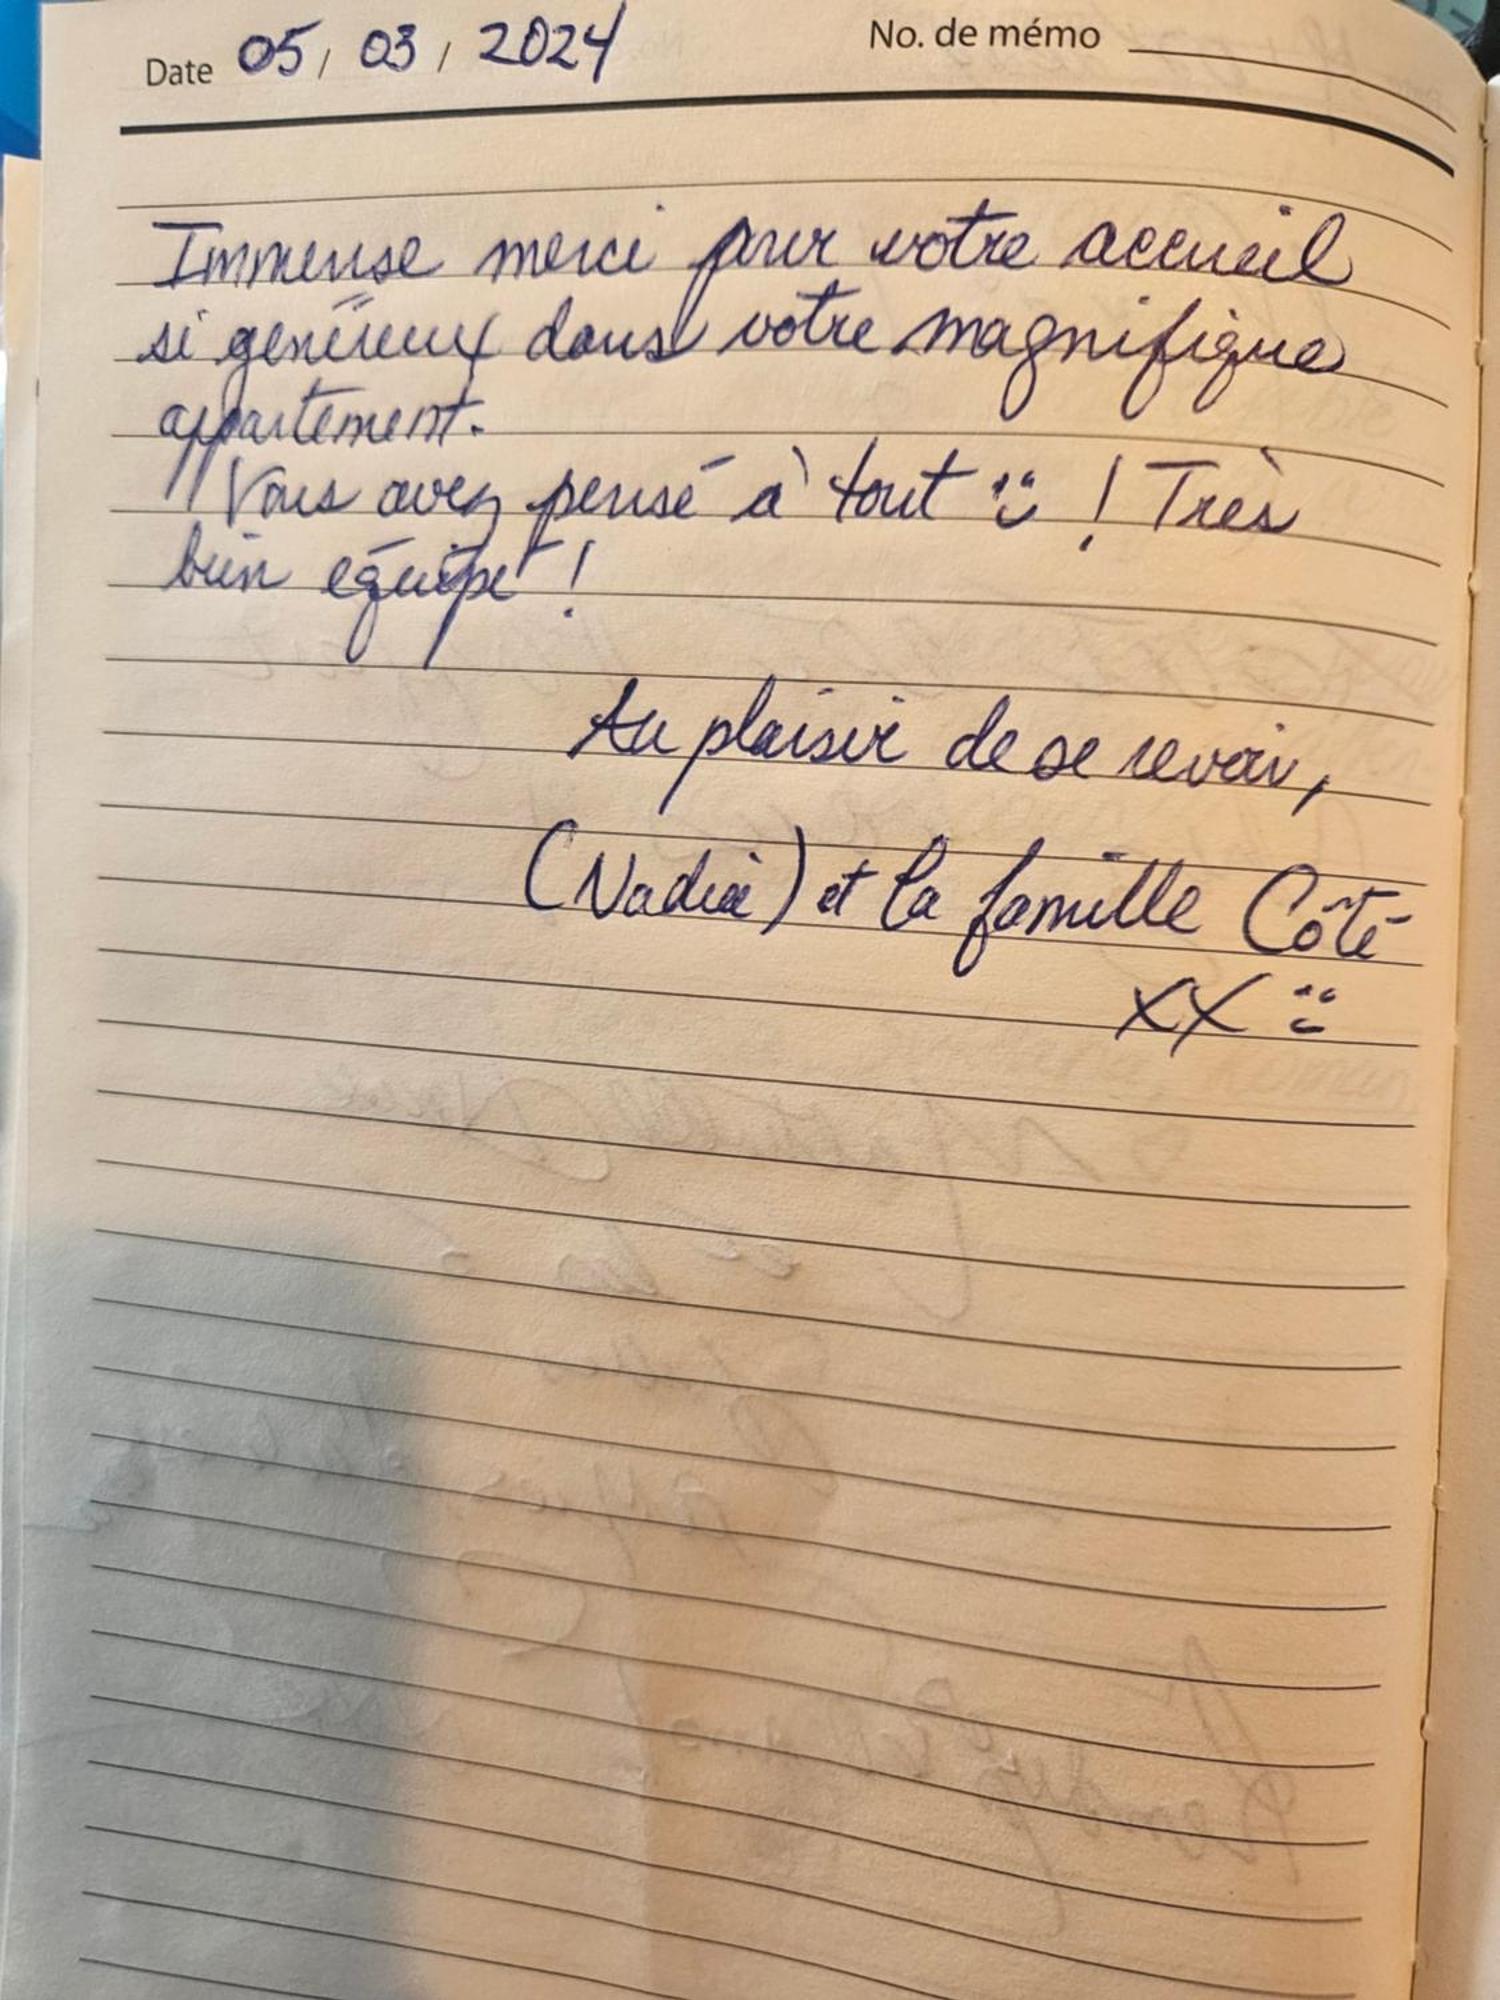 Date 05 / 03 / 2024 No. de mémo
Immense merci pour votre accueil
si généreux dans votre magnifique
appartement.
Vous avez pensé à tout :) ! Très
bien équipé !
Au plaisir de se revoir,
(Nadia) et la famille Côté
XX :)